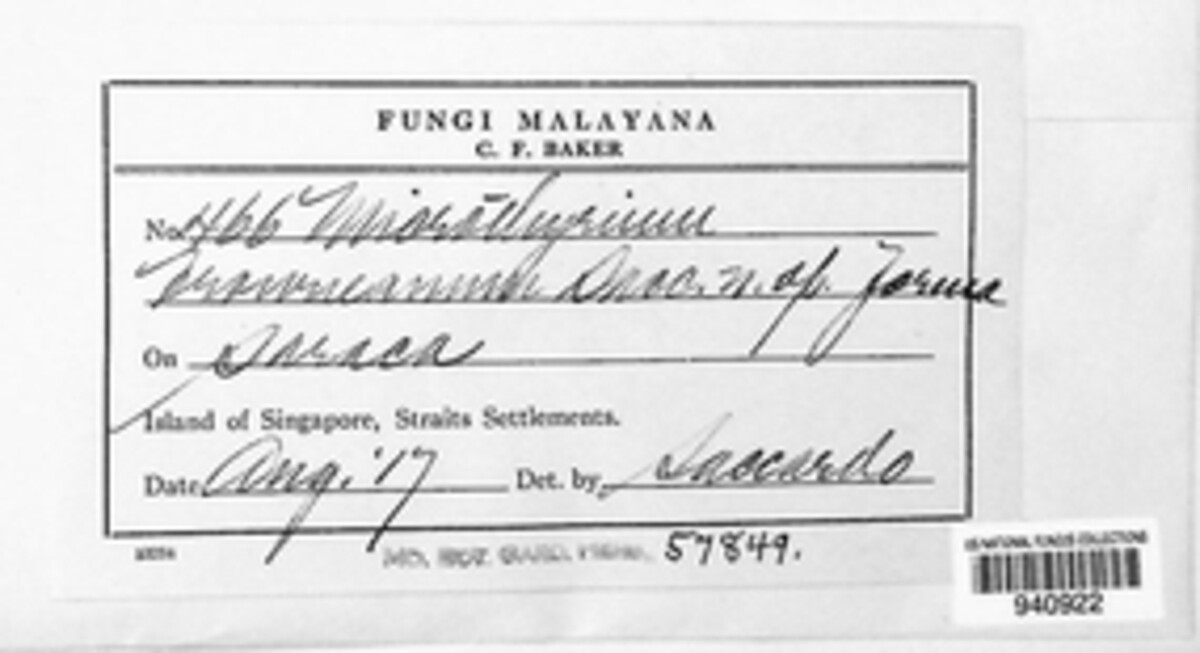 FUNGI MALAYANA
C. F. BAKER
No. 466 Microthyrium
Browneanum Sacc. n. sp. forma
On Saraca
Island of Singapore, Straits Settlements.
Date Aug. '17 Det. by Saccardo
MO. BOT. GARD. HERB. 57849.
US NATIONAL FUNGUS COLLECTIONS
940922